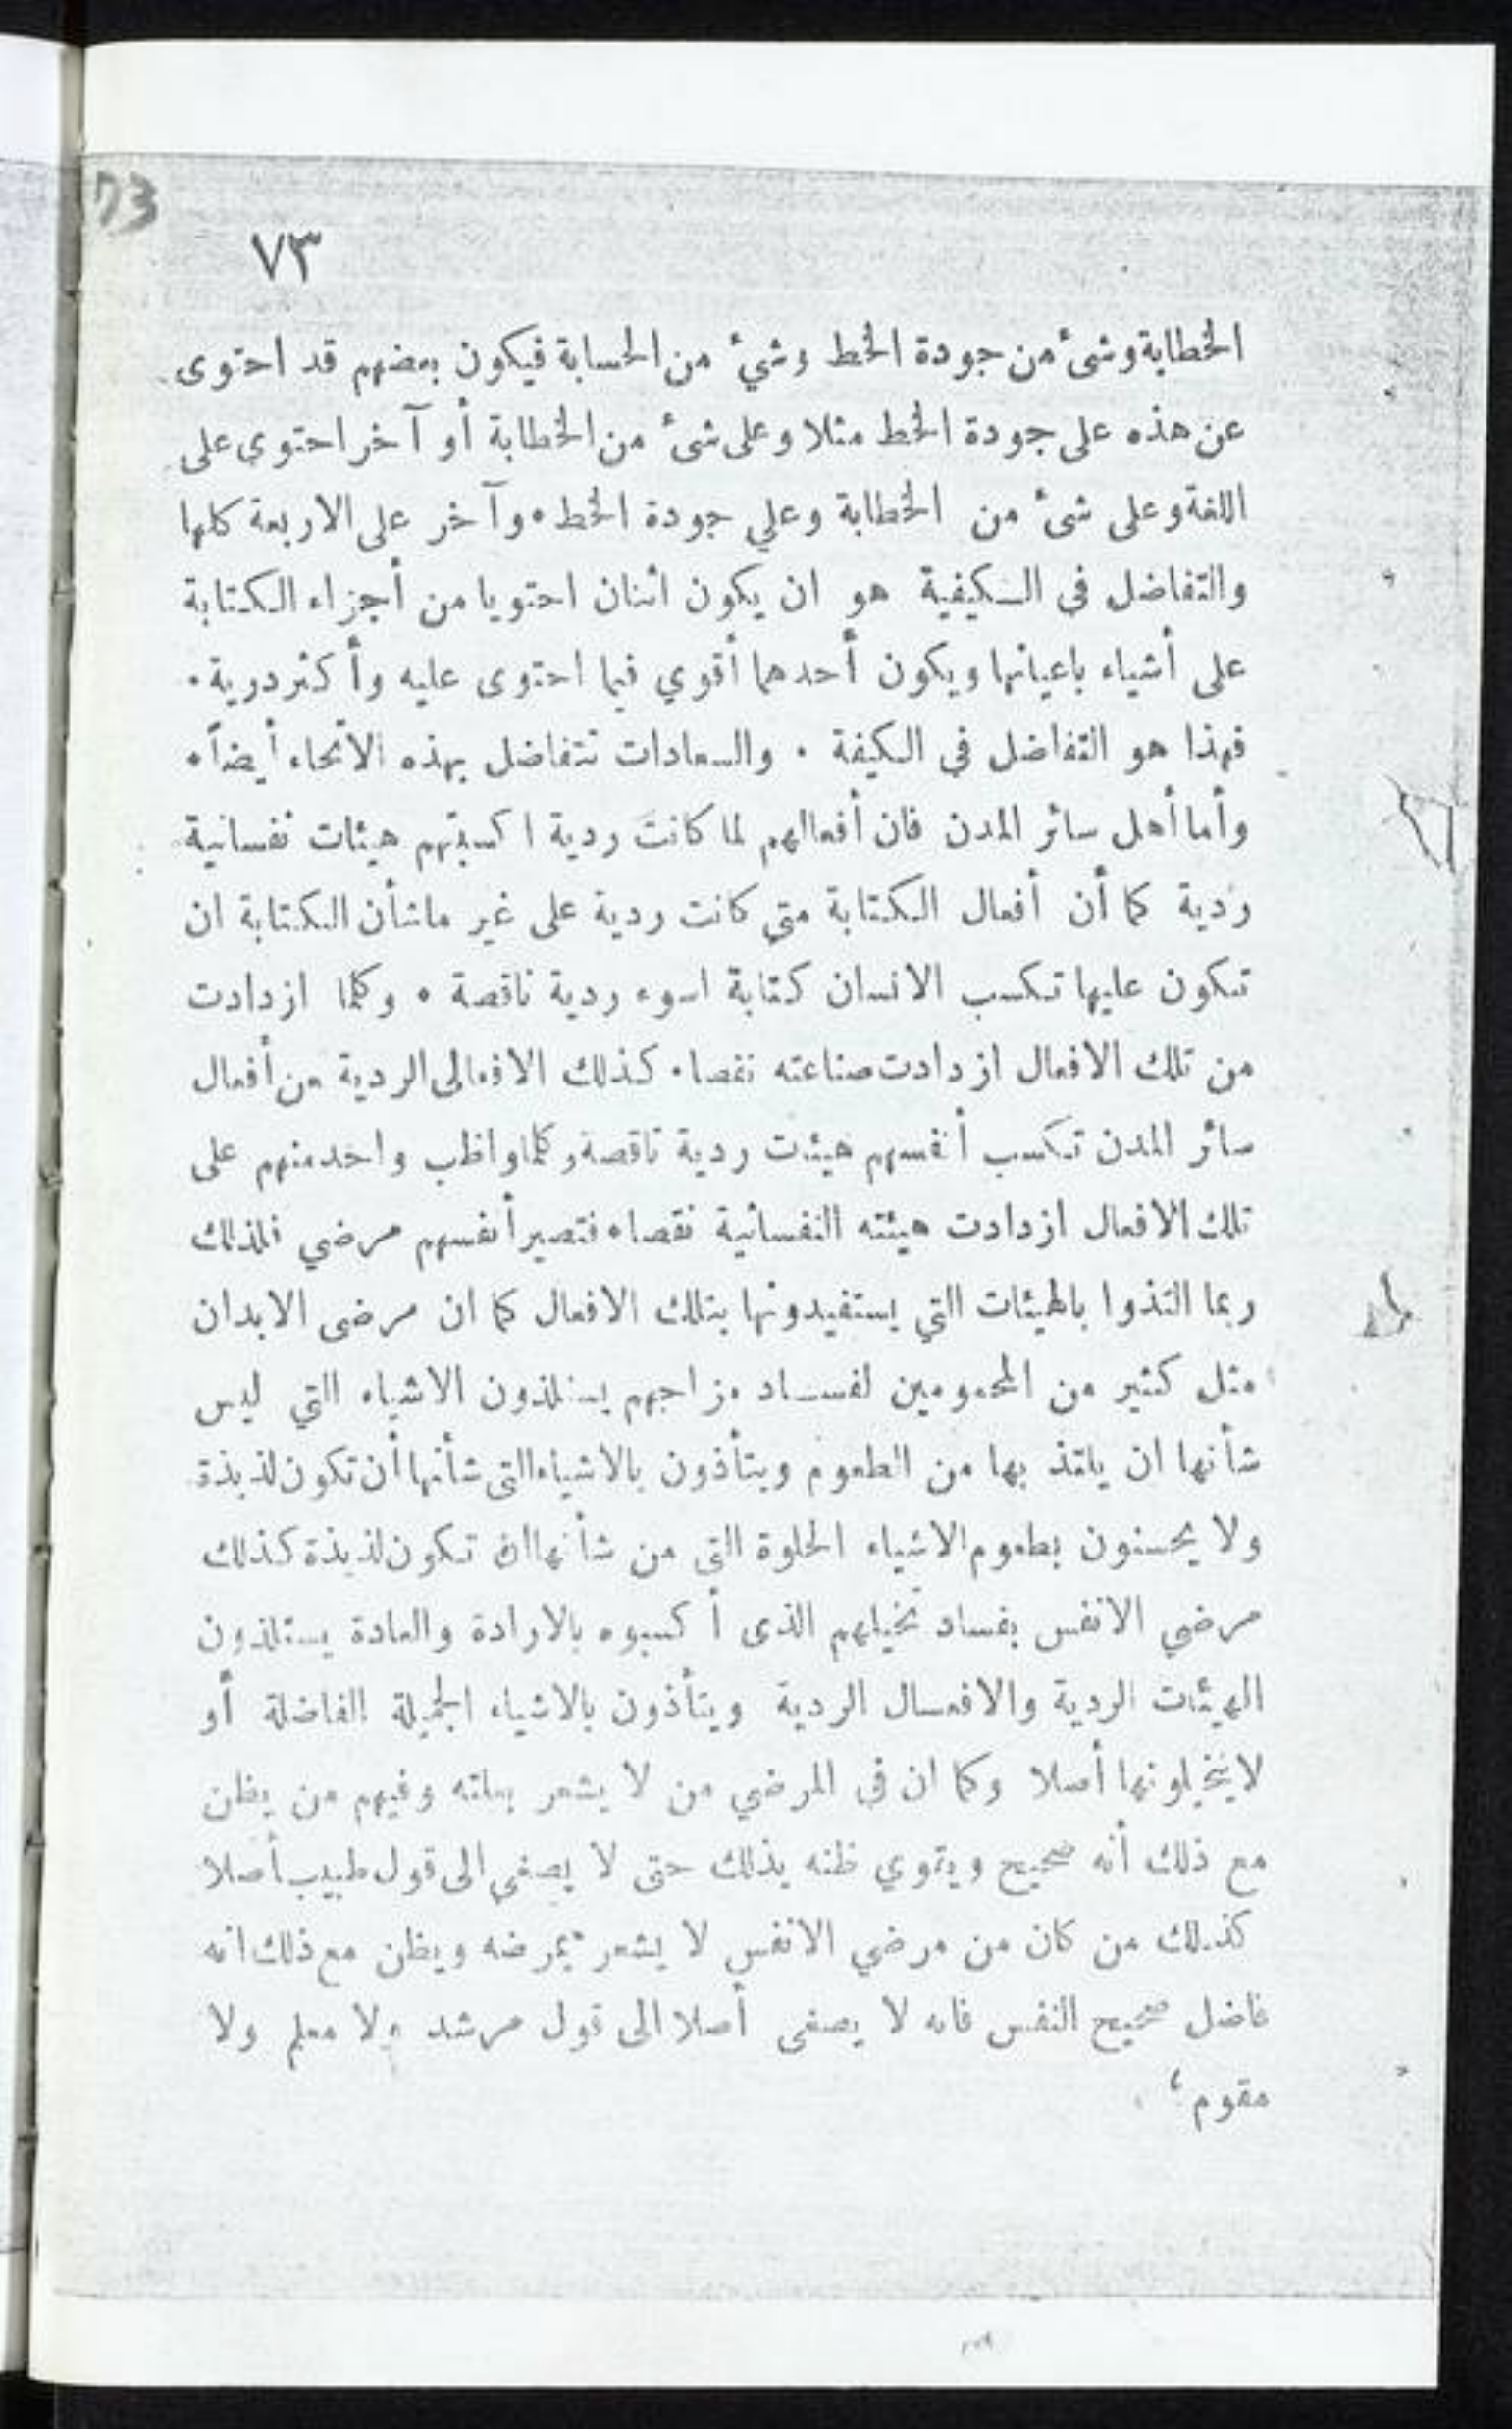 73
٧٣
الخطابة وشئ من جودة الخط وشيء من الحسابة فيكون بعضهم قد احتوى
عن هذه على جودة الخط مثلا وعلى شئ من الخطابة أو آخر احتوى على
اللغة وعلى شئ من الخطابة وعلي جودة الخط ٠ وآخر على الاربعة كلها
والتفاضل في الكيفية هو ان يكون اثنان احتويا من أجزاء الكتابة
على أشياء باعيانها ويكون أحدهما أقوي فيما احتوى عليه وأكثر درية ٠
فهذا هو التفاضل في الكيفة ٠ والسعادات تتفاضل بهذه الأنحاء أيضاً ٠
وأما أهل سائر المدن فان أفعالهم لما كانت ردية اكسبتهم هيئات نفسانية
ردية كما أن أفعال الكتابة متي كانت ردية على غير ماشأن الكتابة ان
تكون عليها تكسب الانسان كتابة اسوء ردية ناقصة ٠ وكلما ازدادت
من تلك الافعال ازدادت صناعته نقصا ٠ كذلك الافعالى الردية من أفعال
سائر المدن تكسب أنفسهم هيئات ردية ناقصة وكلما واظب واحد منهم على
تلك الافعال ازدادت هيئته النفسانية نقصا ٠ فتصير أنفسهم مرضي فلذلك
ربما التذوا بالهيئات التي يستفيدونها بتلك الافعال كما ان مرضى الابدان
مثل كثير من المحمومين لفساد مزاجهم يستلذون الاشياء التي ليس
شأنها ان يلتذ بها من الطعوم ويتأذون بالاشياء التى شأنها أن تكون لذيذة
ولا يحسنون بطعوم الاشياء الحلوة التى من شأنها ان تكون لذيذة كذلك
مرضي الانفس بفساد تخيلهم الذى أكسبوه بالارادة والعادة يستلذون
الهيئات الردية والافعال الردية ويتأذون بالاشياء الجميلة الفاضلة أو
لا يتخيلونها أصلا وكما ان في المرضي من لا يشعر بعلته وفيهم من يظن
مع ذلك أنه صحيح ويقوي ظنه بذلك حتى لا يصغي الى قول طبيب أصلا
كذلك من كان من مرضي الانفس لا يشعر بمرضه ويظن مع ذلك انه
فاضل صحيح النفس فانه لا يصغى أصلا الى قول مرشد ولا معلم ولا
مقوم ؛